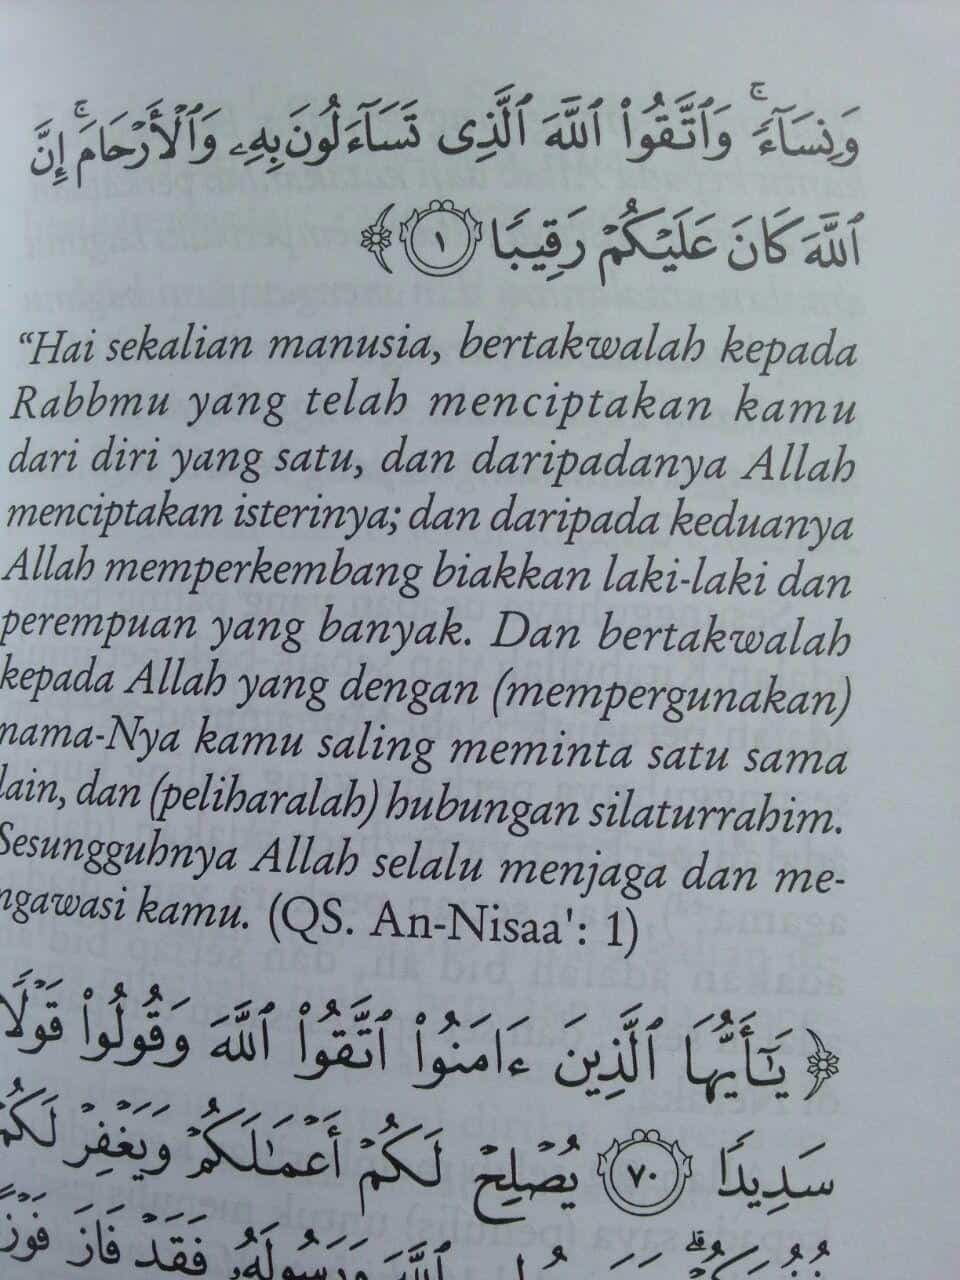 وَنِسَآءًۚ وَٱتَّقُوا۟ ٱللَّهَ ٱلَّذِى تَسَآءَلُونَ بِهِۦ وَٱلْأَرْحَامَۚ إِنَّ
ٱللَّهَ كَانَ عَلَيْكُمْ رَقِيبًا ١
“Hai sekalian manusia, bertakwalah kepada
Rabbmu yang telah menciptakan kamu
dari diri yang satu, dan daripadanya Allah
menciptakan isterinya; dan daripada keduanya
Allah memperkembang biakkan laki-laki dan
perempuan yang banyak. Dan bertakwalah
kepada Allah yang dengan (mempergunakan)
nama-Nya kamu saling meminta satu sama
lain, dan (peliharalah) hubungan silaturrahim.
Sesungguhnya Allah selalu menjaga dan me-
ngawasi kamu. (QS. An-Nisaa': 1)
يَـٰٓأَيُّهَا ٱلَّذِينَ ءَامَنُوا۟ ٱتَّقُوا۟ ٱللَّهَ وَقُولُوا۟ قَوْلًا
سَدِيدًا ٧٠ يُصْلِحْ لَكُمْ أَعْمَـٰلَكُمْ وَيَغْفِرْ لَكُمْ
ٱللَّهَ وَرَسُولَهُۥ فَقَدْ فَازَ فَوْزًا